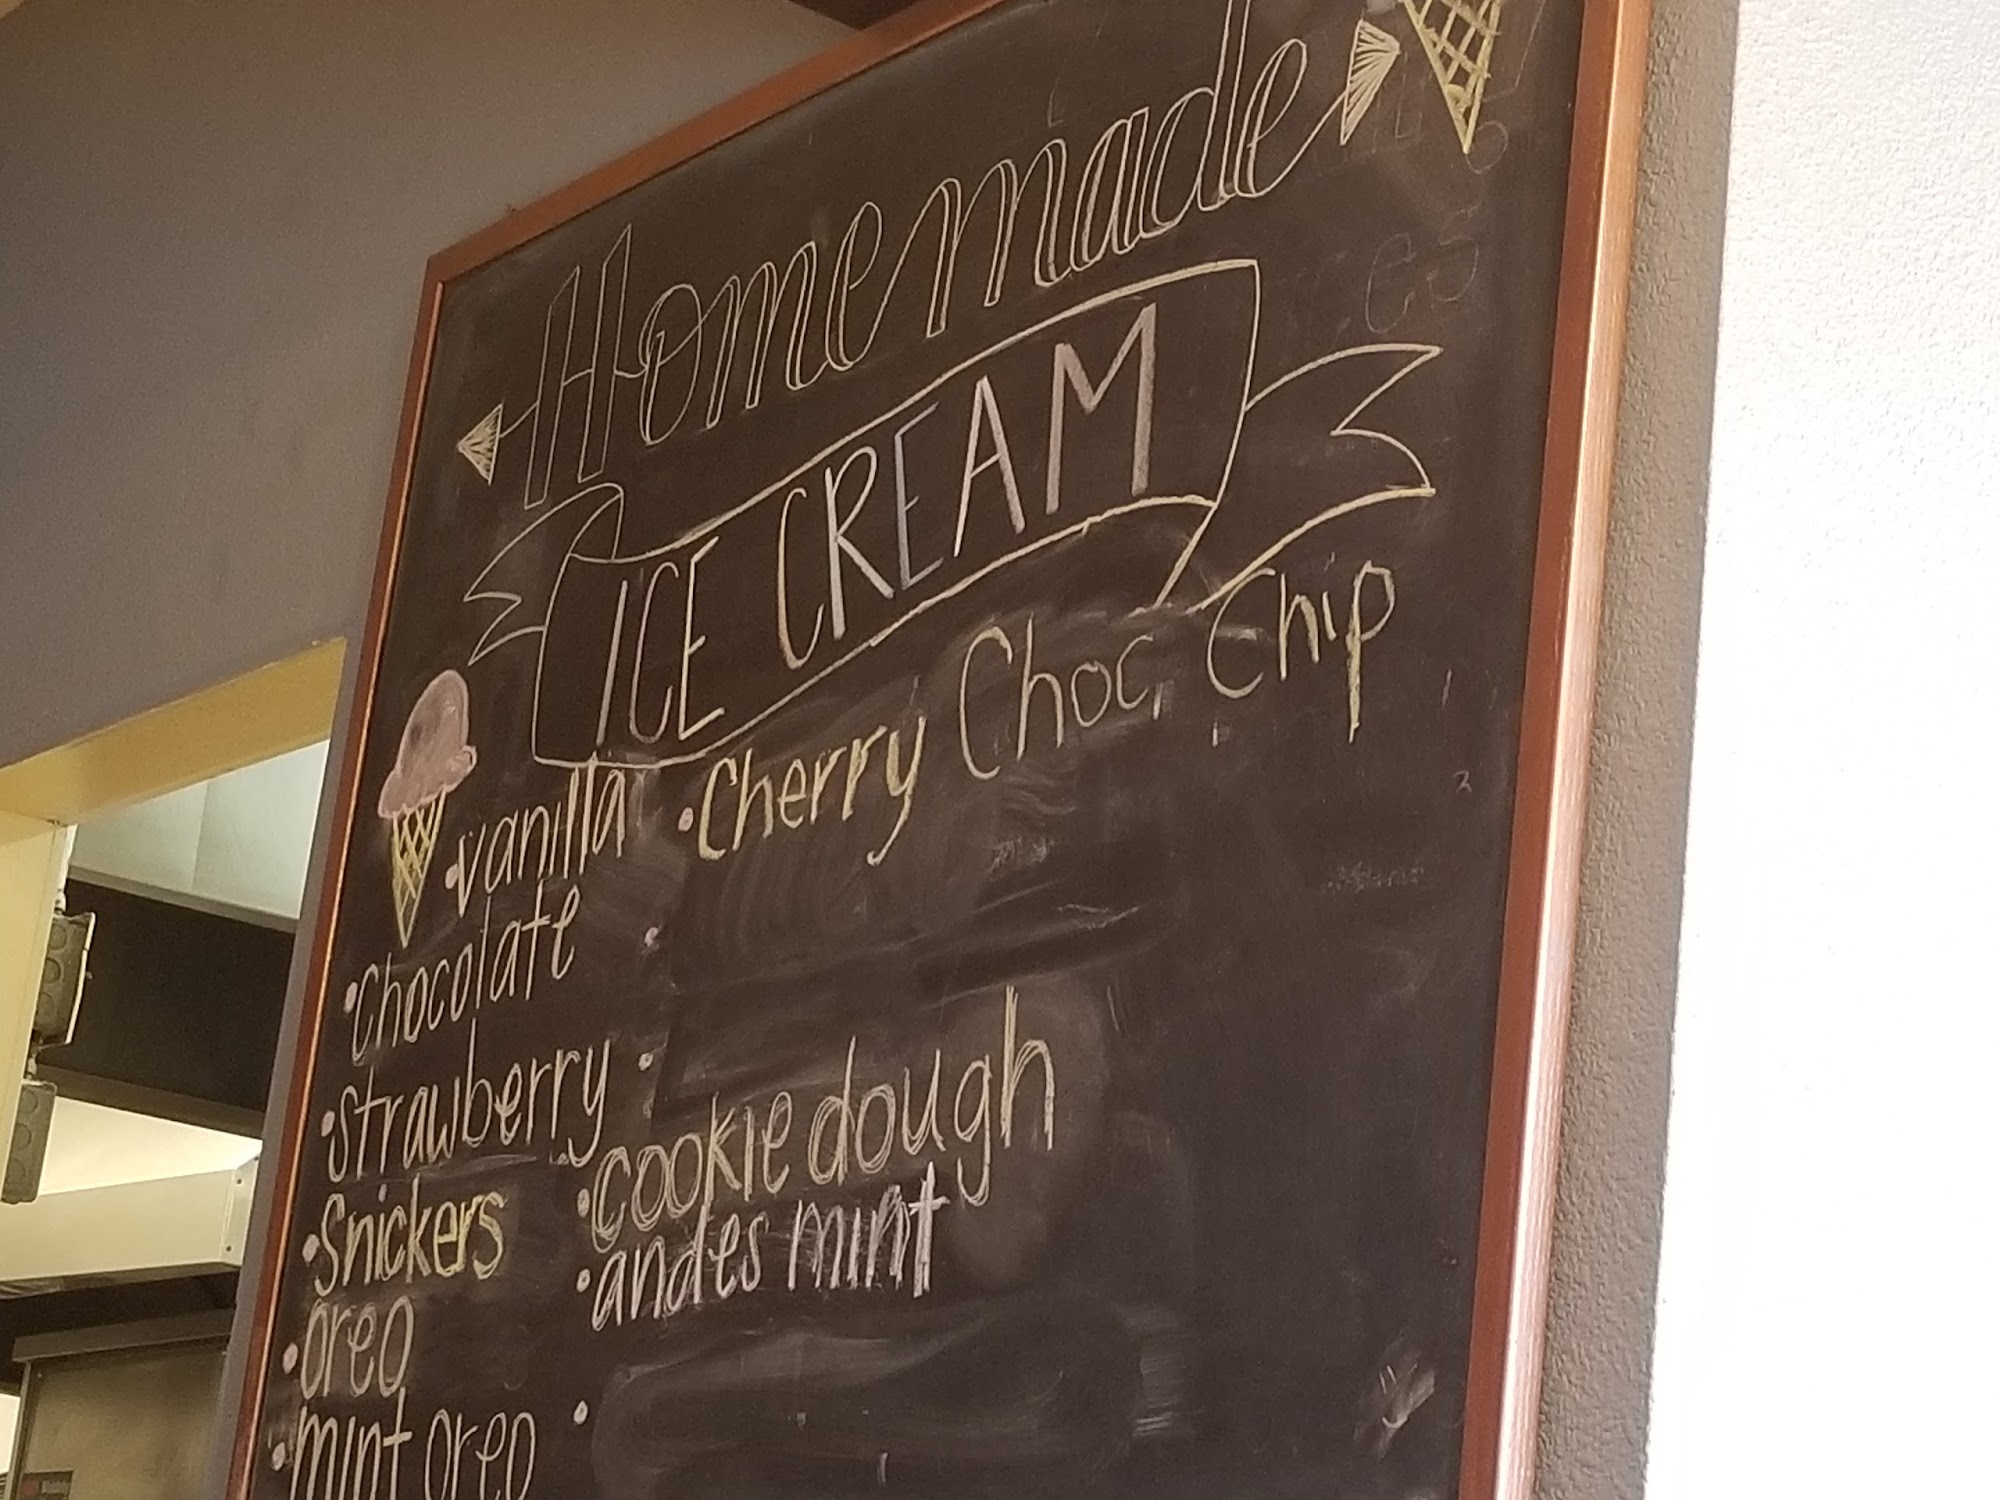 Homemade
ICE CREAM
• vanilla
• Chocolate
• strawberry
• Snickers
• oreo
• mint oreo
• Cherry Choc Chip
•
•
• cookie dough
• andes mint
•